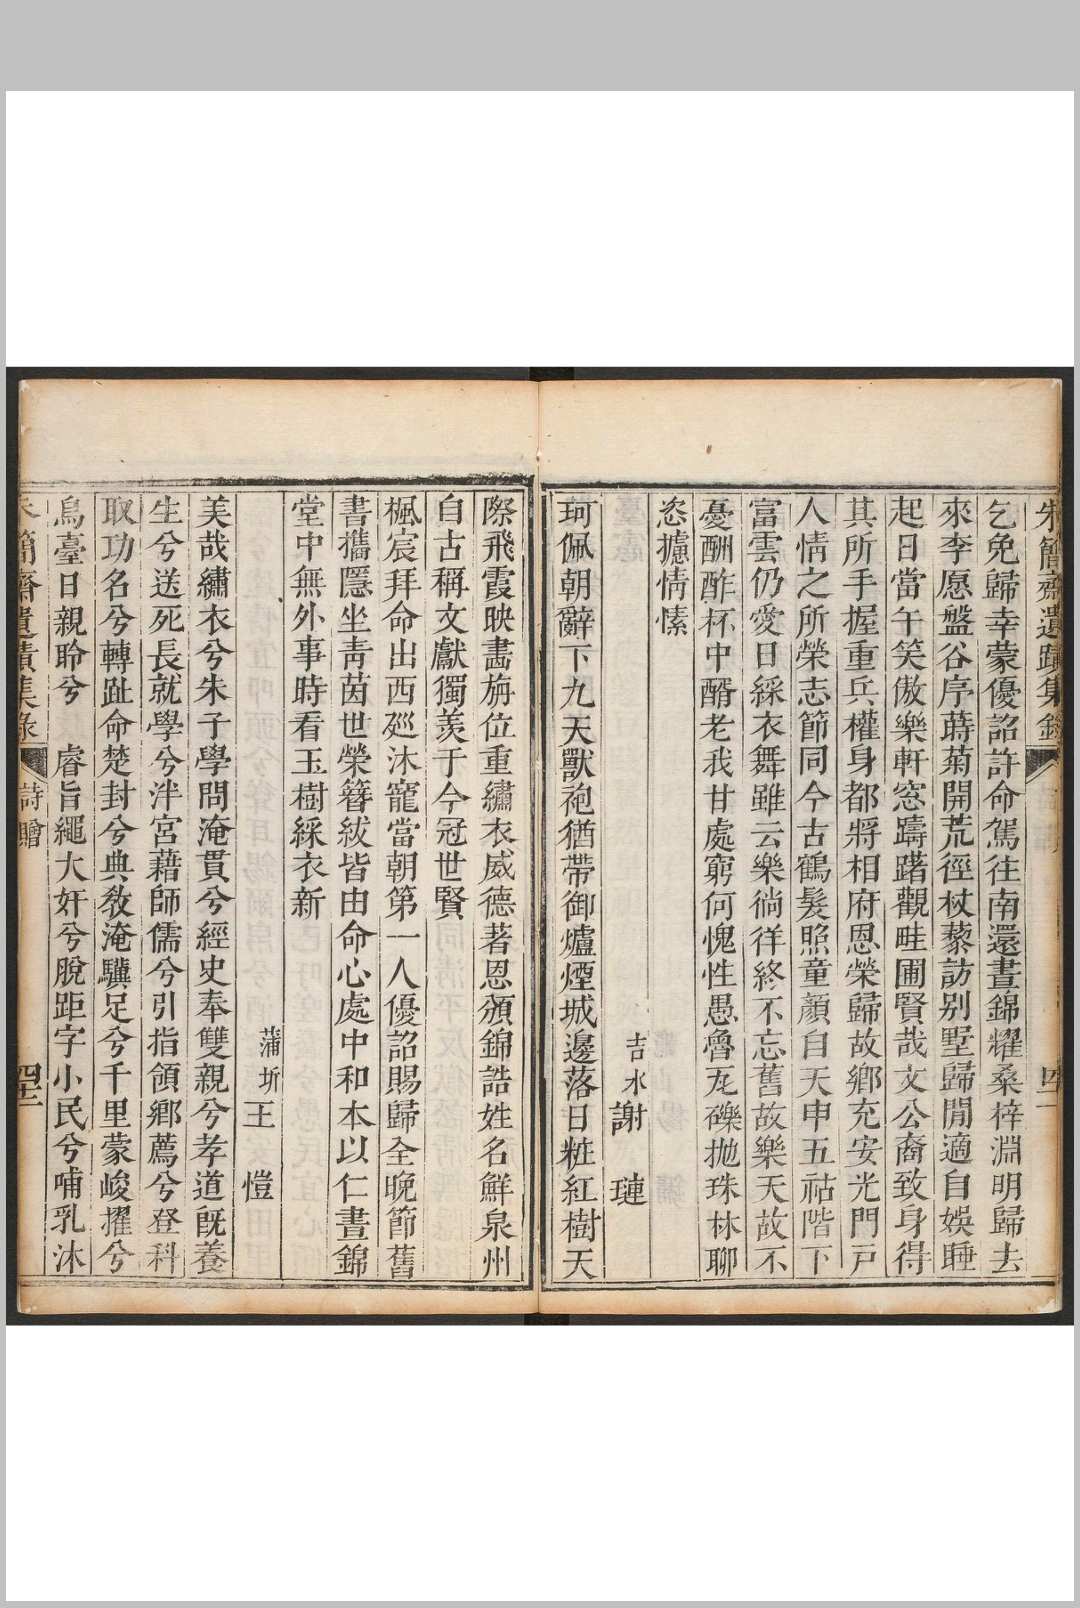 朱簡齋遺蹟集錄
四十一
乞免歸幸蒙優詔許命駕往南還晝錦耀桑梓淵明歸去
來李愿盤谷序蒔菊開荒徑杖藜訪别墅歸閒適自娛睡
起日當午笑傲樂軒窓躊躇觀畦圃賢哉文公裔致身得
其所手握重兵權身都將相府恩榮歸故鄉充安光門戸
人情之所榮志節同今古鶴髮照童顔自天申五祜階下
富雲仍愛日綵衣舞雖云樂徜徉終不忘舊故樂天故不
憂酬酢杯中醑老我甘處窮何愧性愚魯瓦礫抛珠林聊
恣攄情愫
吉水謝　璉
珂佩朝辭下九天獸袍猶帶御爐煙城邊落日粧紅樹天
際飛霞映畵旃位重繡衣威德著恩頒錦誥姓名鮮泉州
自古稱文獻獨羨于今冠世賢
楓宸拜命出西廵沐寵當朝第一人優詔賜歸全晚節舊
書攜隱坐靑茵世榮簪紱皆由命心處中和本以仁晝錦
堂中無外事時看玉樹綵衣新
蒲圻王　愷
美哉繡衣兮朱子學問淹貫兮經史奉雙親兮孝道既養
生兮送死長就學兮泮宮藉師儒兮引指領鄉薦兮登科
取功名兮轉趾命楚封兮典敎淹驥足兮千里蒙峻擢兮
烏臺日親聆兮　睿旨繩大奸兮脫距字小民兮哺乳沐
朱簡齋遺蹟集錄
詩贈
四十二